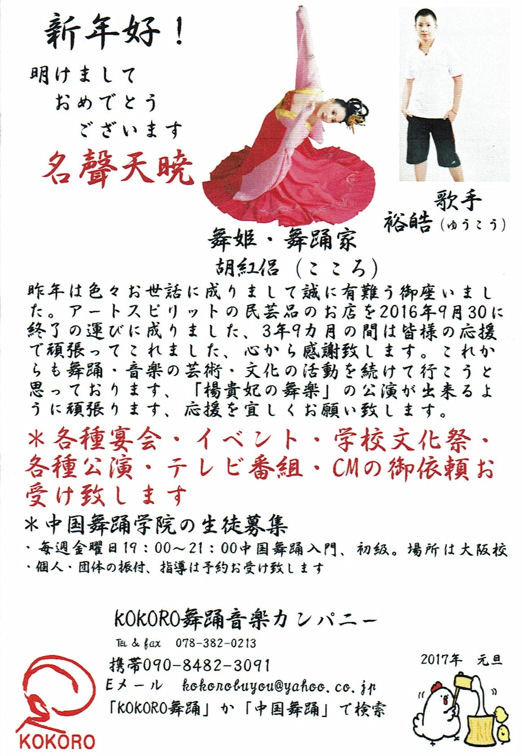 新年好！
明けまして
おめでとう
ございます
名聲天暁
歌手
裕皓（ゆうこう）
舞姫・舞踊家
胡紅侶（こころ）
昨年は色々お世話に成りまして誠に有難う御座いまし
た。アートスピリットの民芸品のお店を2016年9月30に
終了の運びに成りました、3年9カ月の間は皆様の応援
で頑張ってこれました、心から感謝致します。これか
らも舞踊・音楽の芸術・文化の活動を続けて行こうと
思っております、「楊貴妃の舞楽」の公演が出来るよ
うに頑張ります、応援を宜しくお願い致します。
＊各種宴会・イベント・学校文化祭・
各種公演・テレビ番組・CMの御依頼お
受け致します
＊中国舞踊学院の生徒募集
・毎週金曜日19：00～21：00中国舞踊入門、初級。場所は大阪校
・個人・団体の振付、指導は予約お受け致します
KOKORO舞踊音楽カンパニー
℡ & fax 078-382-0213
携帯090-8482-3091
Eメール kokorobuyou@yahoo.co.jp
「KOKORO舞踊」か「中国舞踊」で検索
2017年 元旦
KOKORO